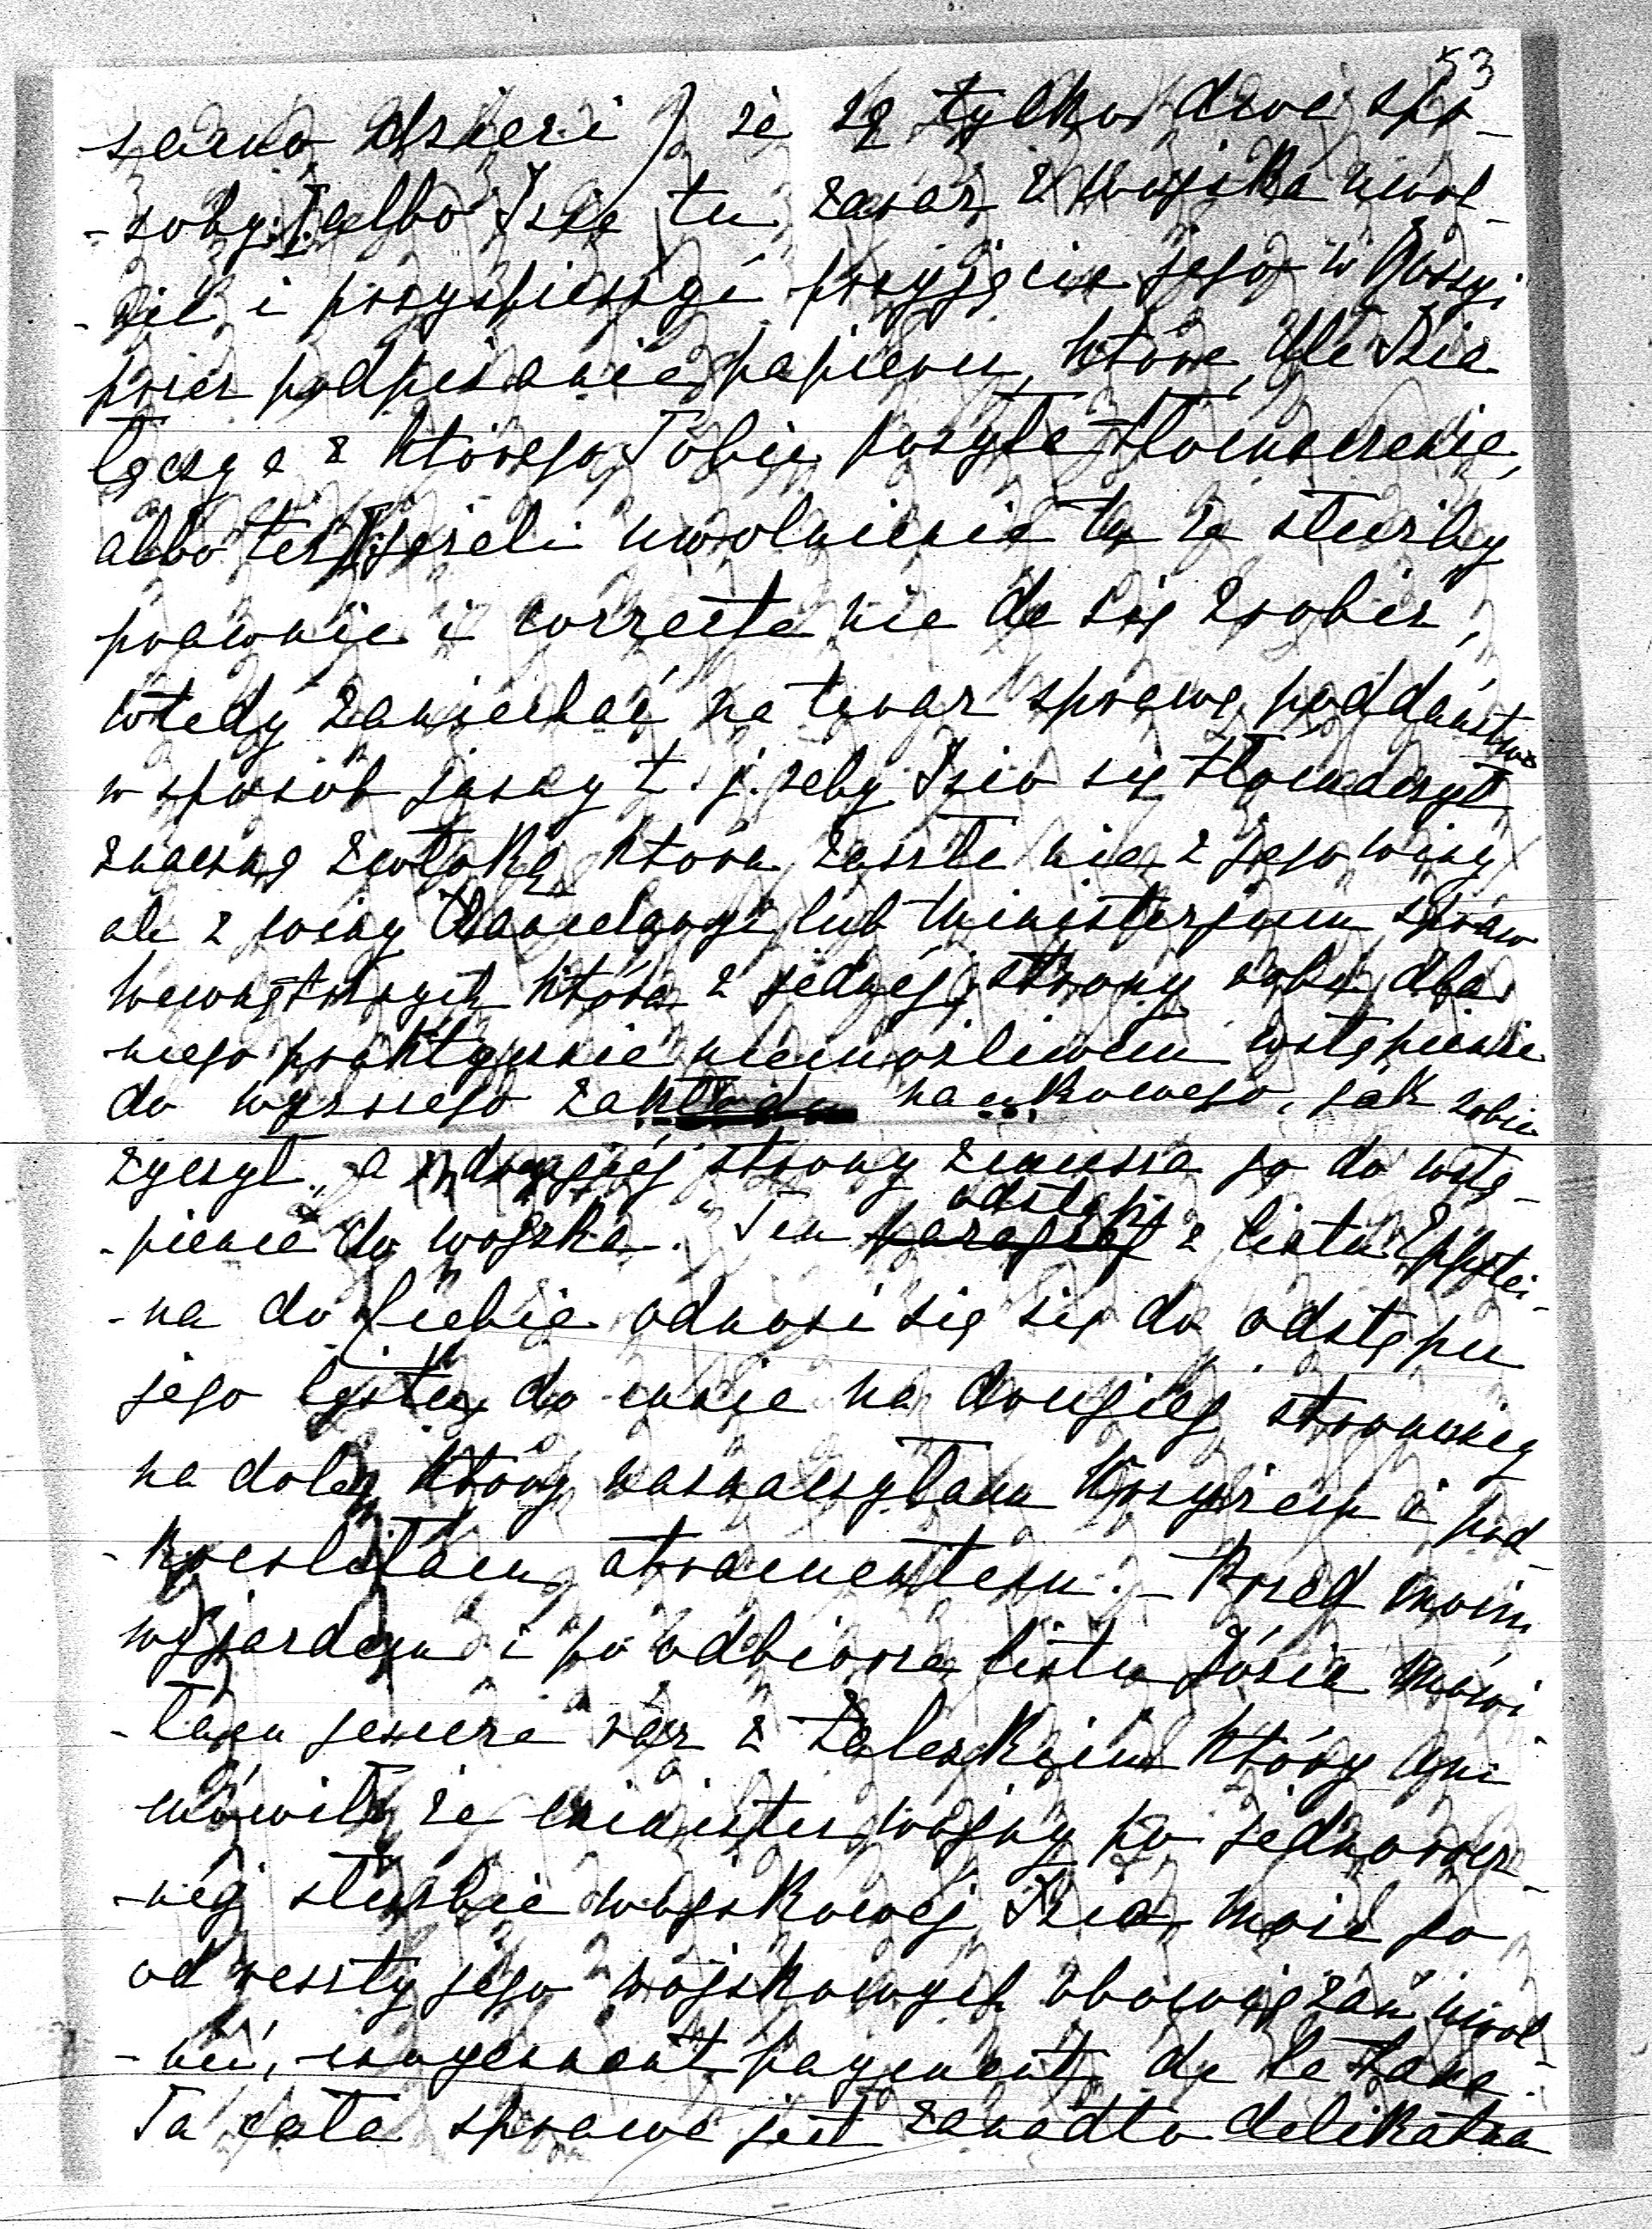 53
samo dzieci) że są tylko dwa spo-
-soby: I albo Izia tu zaraz z wojska uwol-
-nić i przyspieszyć przyjęcie jego w Rossyi
przez podpisanie papieru, które dla Izia
łączę a z którego Tobie posyłe tłomaczenie,
albo też II jeżeli uwolnienie tu ze służby
prawnie i correcte nie da się zrobić,
wtedy zaniechać na teraz sprawę poddaństwa
w sposób jasny t. j. żeby Izio się tłomaczył
znaczną zwłoką która zaszła nie z jego winy
ale z winy Kancelaryi lub Ministerjum spraw
wewnętrznych która z jednej strony robi dla
niego praktycznie niemożliwem wstąpienie
do wyższego zakładu naukowego, jak sobie
życzył, a z drugiéj strony zmusza go do wstą-
-pienia do wojska." Ten odstęp z listu Eppstei-
-na do Ciebie odnosi się się do odstępu
jego listu do mnie na drugiej stronnicy
na dole który naznaczyłam krzyżem i pod-
-kreśliłam atramentem. – Przed moim
wyjazdem i po odbiorze listu Józia mówi-
-łam jeszcze raz z Zaleskim który mi
mówił że minister wojny po jednorocz-
-néj służbie wojskowéj Izia może go
od reszty jego wojskowych obowiązań uwol-
-nić, moyennant payement de la taxe.
Ta cała sprawa jest zanadto delikatna